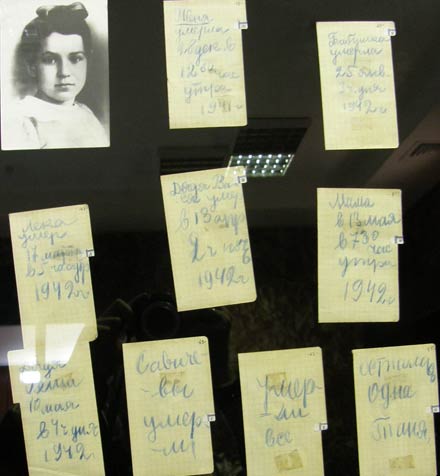 Женя
умерла
28 дек в
12 00 час
утра
1941 г
Бабушка
умерла
25 янв.
3 ч дня
1942 г
Лека
умер
17 марта
в 5 час утр
1942 г
Дядя Вас
умер
в 13 апр
2 ч ноч
1942 г
Мама
в 13 мая
в 7 30 час
утра
1942 г
Дядя
Леша
10 мая
в 4 ч дня
1942
Савиче
-вы
умер
-ли
Умер
ли
все
осталась
одна
Таня